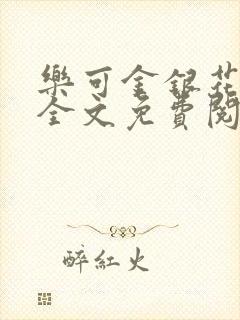 樂可金銀花
全文免費閱
醉紅火